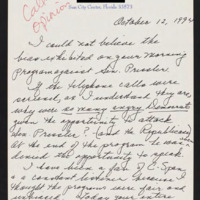 Call in
Opinion
Sun City Center, Florida 33573
October 12, 1994
I could not believe the
bias exhibited on your morning
program against Sen. Pressler.
If the telephone calls were
serious, as I understand they are,
why were so many angry Democrats
given the opportunity to attack
Sen Pressler? (and the Republicans)
At the end of the program he was
denied the opportunity to speak.
I have been a fan of C-Span
as a constant listener
thought the programs were fair and
unbiased. Today your